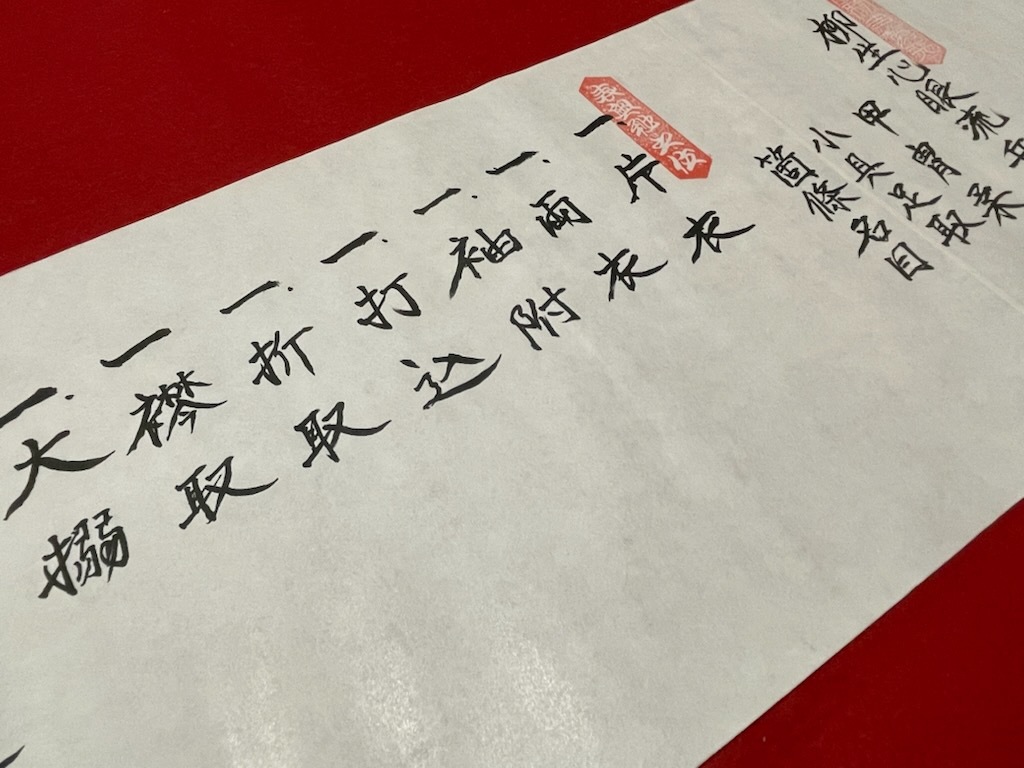 柳生心眼流
甲冑柔
小具足取
箇條名目
一 片衣
一 兩衣
一 袖附
一 打込
一 折取
一 襟取
一 大搦